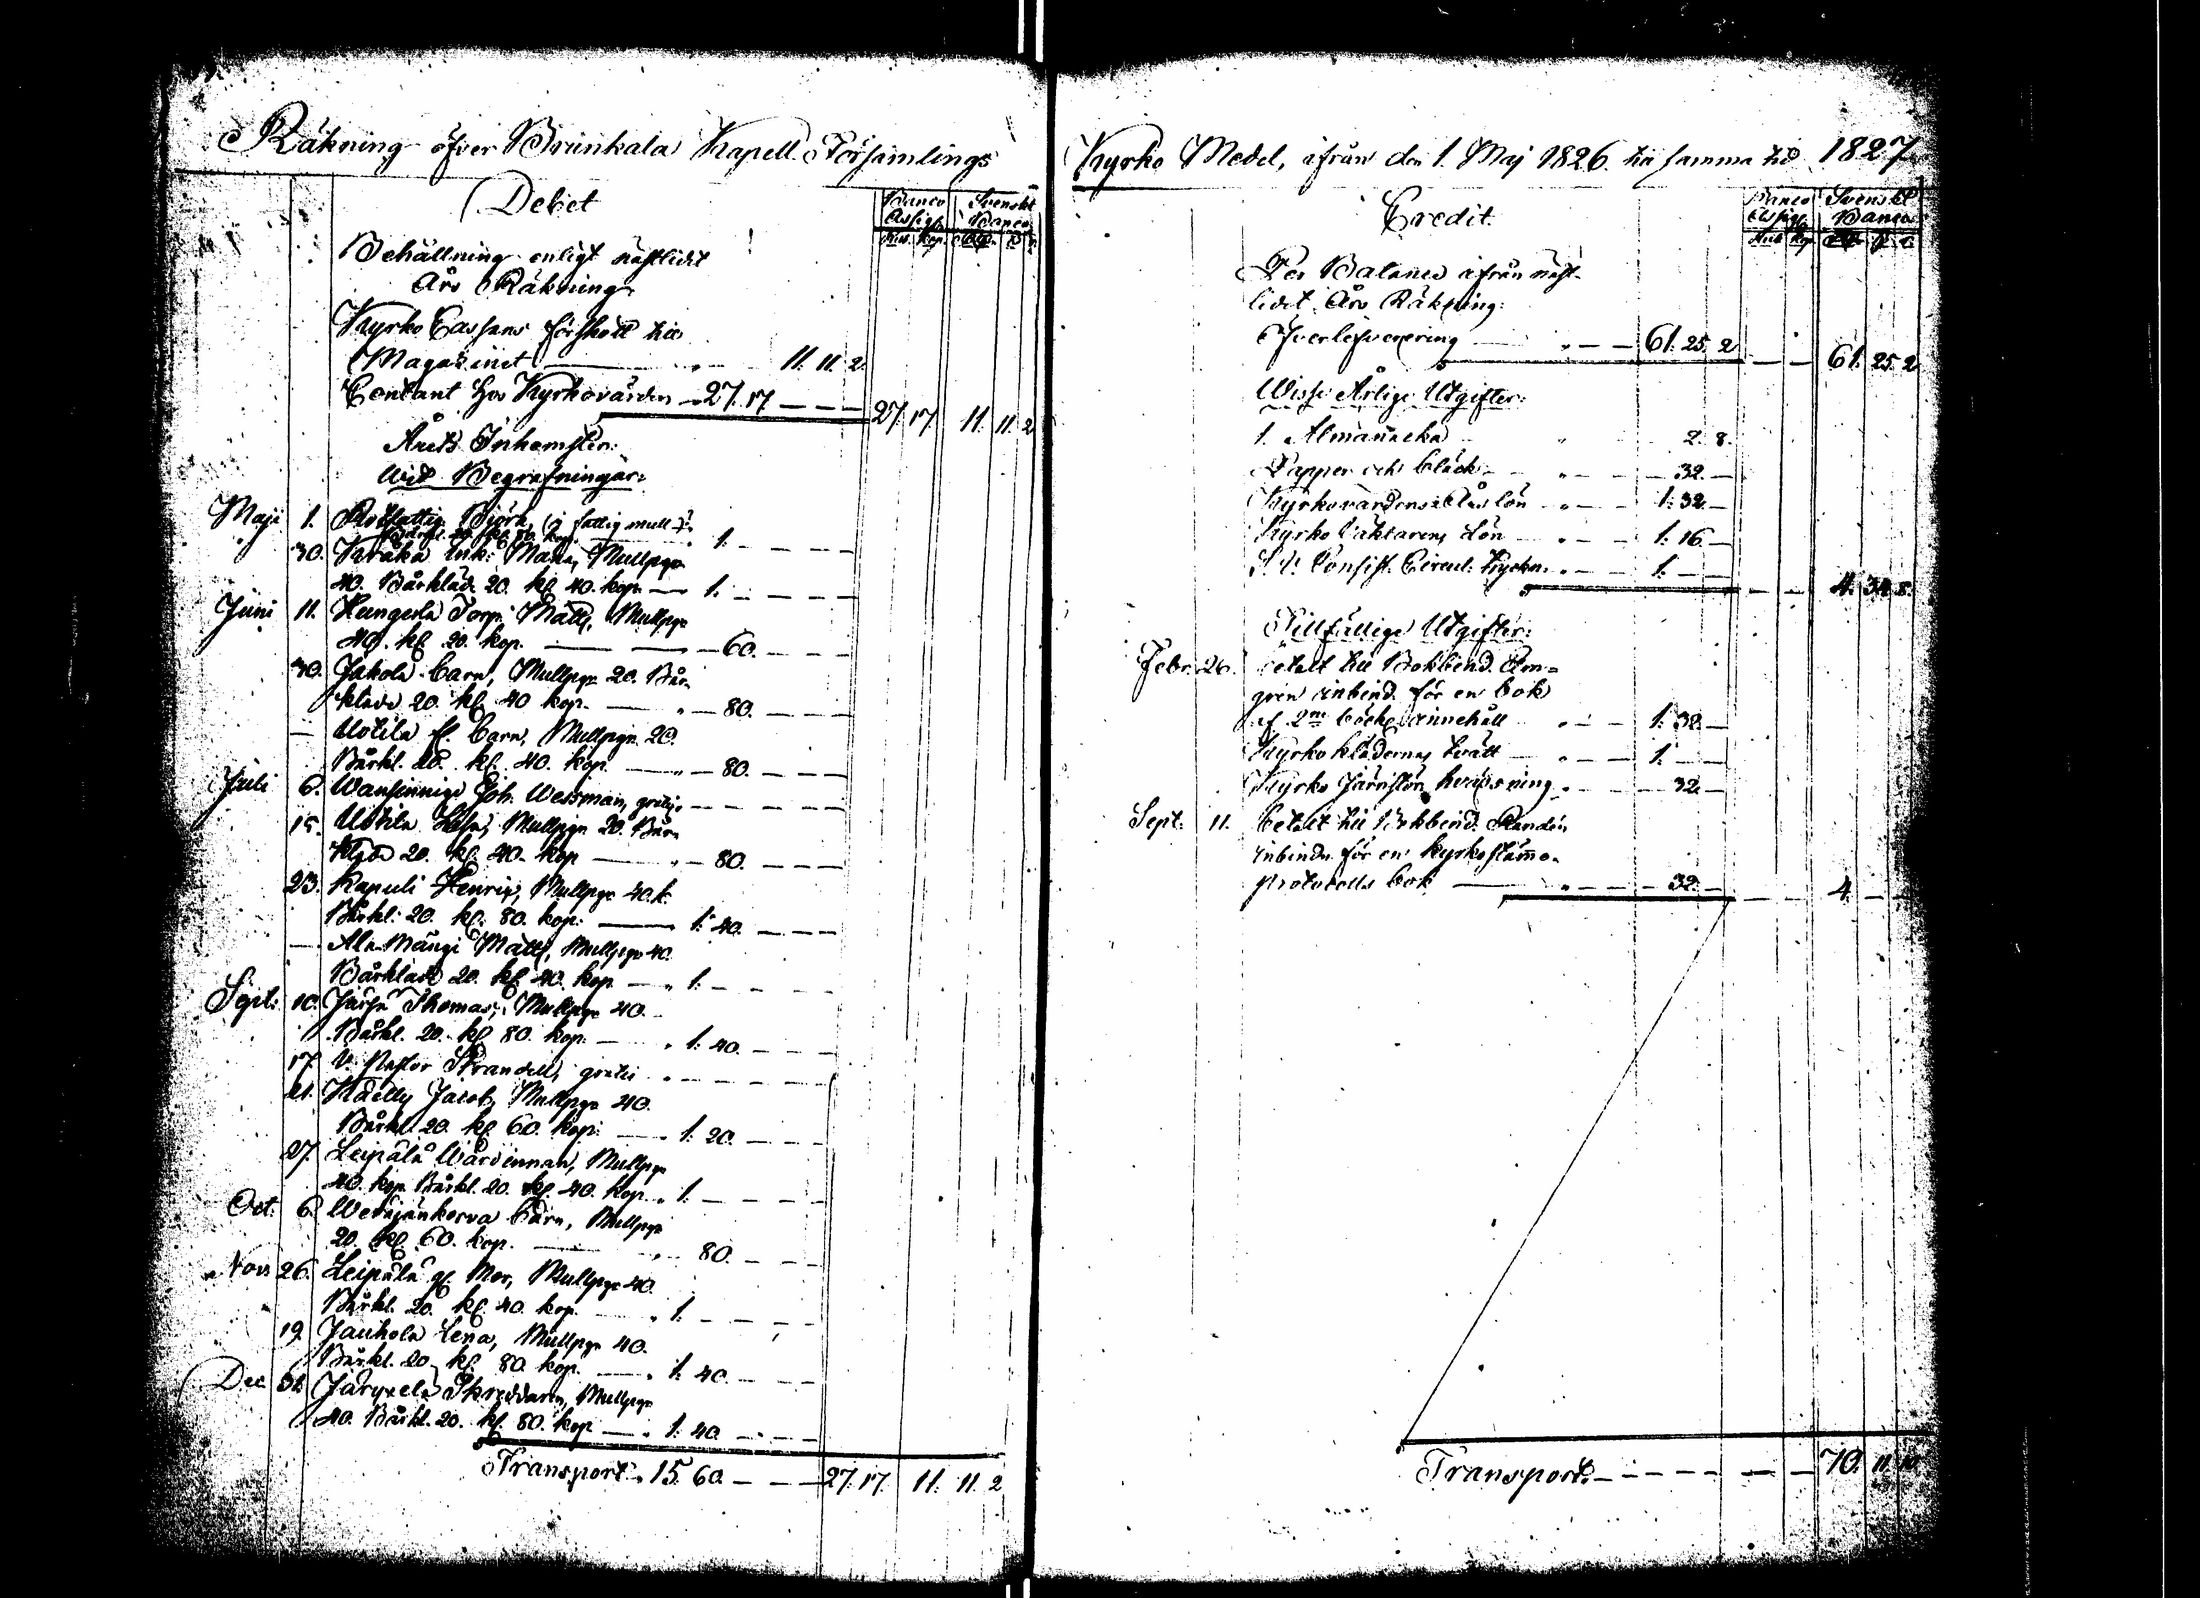 Räkning öfver Brunkala Kapell Församlings
Debet
Banco Assign. Svenskt Banco
Rub. Kop.
Behållning enligt nästlidit
Års Räkning
Kyrko Cassans förskott til
Magasinet 11. 11. 2
Contant hos Kyrkovärden 27. 17 — — — 27. 17. 11. 11. 2
Årets Inkomster:
Wid Begrafningar:
Maji 1. Rotfattig Björk, (i fattig mull
1. — — —
30. Inh: Mullpgr
40. Bårkläde 20. kl. 40. kop. — 1. — — —
Juni 11. Torp. Matts, Mullpgr
40. kl. 20. kop. — — 60. — — —
30. Jakola Barn, Mullpgr 20. Bår
kläde 20. kl. 40 kop. — 80. — — —
— Uotila fl. Barn, Mullpgr 20.
Bårkl. 20. kl. 40. kop. — 80. — — —
Juli 6. Wansinnige Joh. Weisman, gratis — — —
15. Uotila Mullpgr 20. Bår
kläde 20. kl. 40. kop — 80. — — —
23. Kapuli Henric, Mullpgr 40. k.
Bårkl: 20. kl. 80. kop: — 1: 40. — — —
— Ala Mängi Matts, Mullpgr 40.
Bårkläde 20. kl. 40. kop — 1. — — —
Sept: 10. Thomas, Mullpgr 40.
Bårkl. 20. kl. 80. kop. — 1: 40. — — —
17. V. Pastor Strandell, gratis — — —
21. Jacob, Mullpgr 40.
Bårkl. 20. kl. 60. kop: — 1: 20. — — —
27. Leipälä Wärdinnan, Mullpgr
40. kop. Bårkl. 20. kl. 40. kop. 1. — — —
Oct. 6. Barn, Mullpgr
20. kl. 60. kop. — 80. — — —
Nov. 26. Leipälä gl. Mor, Mullpgr 40.
Bårkl. 20. kl. 40. kop. 1. — — —
19. Jauhola Lena, Mullpgr 40.
Bårkl. 20. kl. 80. kop. — 1: 40. — — —
Dec 31. Järvelä Skreddaren, Mullpgr
40. Bårkl. 20. kl. 80. kop — 1: 40. — — —
Transport. 15. 60. — — — 27. 17. 11. 11. 2
Kyrko Medel, ifrån den 1. Maj 1826. til samma tid 1827
Credit.
Banco Assign. Svenskt Banco
Per Balance ifrån näst-
lidet Års Räkning:
Öfverlefverering — 61. 25. 2 — — 61. 25. 2
Wisse Årlige Utgifter:
1. Almanacka 2. 8.
Papper och bläck — 32. —
Kyrkovärdens lön — 1: 32. —
Kyrko Wäktarens lön — 1: 16. —
Consist. Circul. 1. — — — — 4. 34. 8.
Tillfällige Utgifter:
Febr. 26. betalt til Bokbind. Alm-
gren inbind. för en bok
af 2ne böcker innehåll — 1: 32. —
Kyrko klädernas tvätt — 1. —
Kyrko — 32. —
Sept. 11. betalt til Bokbind. Randén
inbindn. för en kyrkostämmo-
protocolls bok — 32. — — — 4. — —
Transport. — — — — — 70. 11. 10